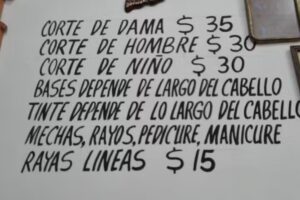 CORTE DE DAMA $ 35
CORTE DE HOMBRE $ 30
CORTE DE NIÑO $ 30
BASES DEPENDE DE LARGO DEL CABELLO
TINTE DEPENDE DE LO LARGO DEL CABELLO
MECHAS, RAYOS, PEDICURE, MANICURE
RAYAS LINEAS $ 15